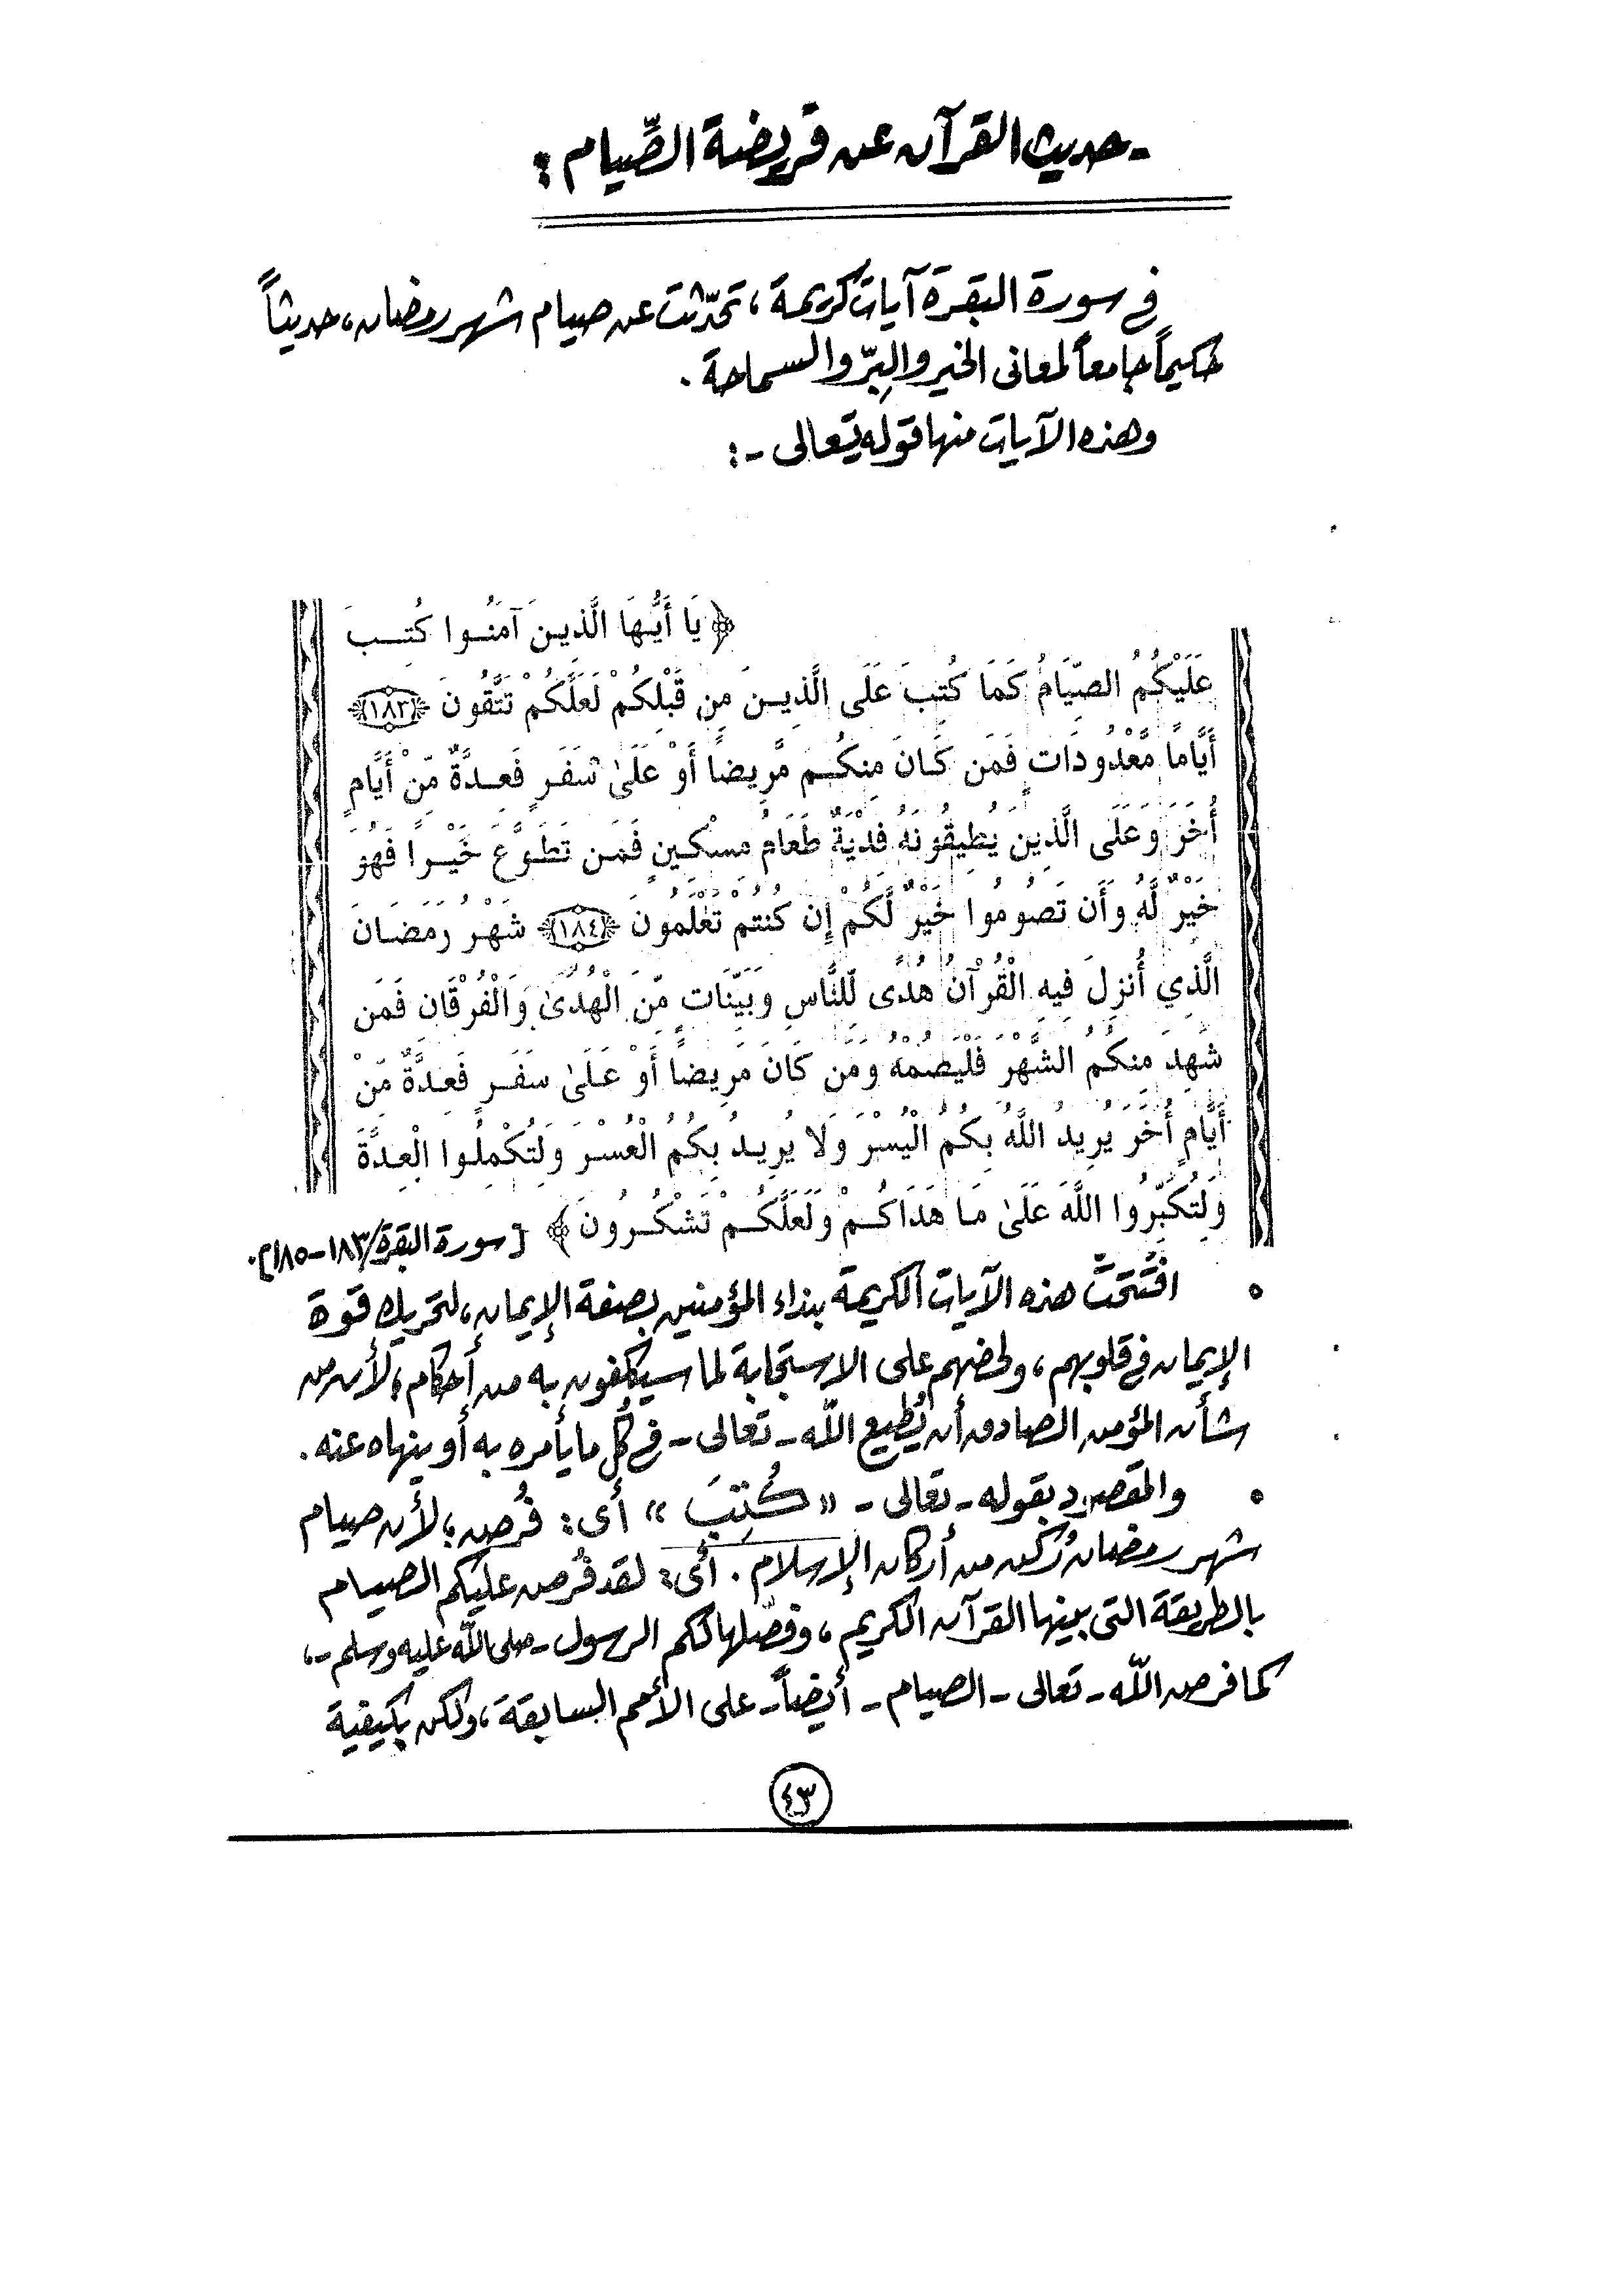 - حديث القرآن عن فريضة الصِّيام :
فى سورة البقرة آيات كريمة ، تحدّثت عن صيام شهر رمضان ، حديثاً
حكيماً جامعاً لمعانى الخير والبِرّ والسماحة .
وهذه الآيات منها قوله تعالى - :
﴿ يَا أَيُّهَا الَّذِينَ آمَنُوا كُتِبَ
عَلَيْكُمُ الصِّيَامُ كَمَا كُتِبَ عَلَى الَّذِينَ مِن قَبْلِكُمْ لَعَلَّكُمْ تَتَّقُونَ ﴿١٨٣﴾
أَيَّامًا مَّعْدُودَاتٍ فَمَن كَانَ مِنكُم مَّرِيضًا أَوْ عَلَىٰ سَفَرٍ فَعِدَّةٌ مِّنْ أَيَّامٍ
أُخَرَ وَعَلَى الَّذِينَ يُطِيقُونَهُ فِدْيَةٌ طَعَامُ مِسْكِينٍ فَمَن تَطَوَّعَ خَيْرًا فَهُوَ
خَيْرٌ لَّهُ وَأَن تَصُومُوا خَيْرٌ لَّكُمْ إِن كُنتُمْ تَعْلَمُونَ ﴿١٨٤﴾ شَهْرُ رَمَضَانَ
الَّذِي أُنزِلَ فِيهِ الْقُرْآنُ هُدًى لِّلنَّاسِ وَبَيِّنَاتٍ مِّنَ الْهُدَىٰ وَالْفُرْقَانِ فَمَن
شَهِدَ مِنكُمُ الشَّهْرَ فَلْيَصُمْهُ وَمَن كَانَ مَرِيضًا أَوْ عَلَىٰ سَفَرٍ فَعِدَّةٌ مِّنْ
أَيَّامٍ أُخَرَ يُرِيدُ اللَّهُ بِكُمُ الْيُسْرَ وَلَا يُرِيدُ بِكُمُ الْعُسْرَ وَلِتُكْمِلُوا الْعِدَّةَ
وَلِتُكَبِّرُوا اللَّهَ عَلَىٰ مَا هَدَاكُمْ وَلَعَلَّكُمْ تَشْكُرُونَ ﴾ [ سورة البقرة/١٨٣-١٨٥] .
• افتُتحت هذه الآيات الكريمة بنداء المؤمنين بصفة الإيمان ، لتحريك قوة
الإيمان فى قلوبهم ، ولحضهم على الاستجابة لما سيكلفون به من أحكام ؛ لأن من
شأن المؤمن الصادق أن يُطيع الله - تعالى - فى كُل ما يأمره به أو ينهاه عنه .
• والمقصود بقوله - تعالى - « كُتِبَ » أى : فُرض ؛ لأن صيام
شهر رمضان رُكن من أركان الإسلام . أى : لقد فُرض عليكم الصيام
بالطريقة التى بينها القرآن الكريم ، وفصّلها لكم الرسول - صلى الله عليه وسلم - ،
كما فرض الله - تعالى - الصيام - أيضاً - على الأمم السابقة ، ولكن بكيفية
٤٣